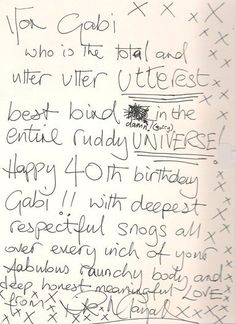 For Gabi
who is the total and
utter utter utterest
best bird in the
damn (sorry)
entire ruddy UNIVERSE!
Happy 40th birthday
Gabi !! with deepest
respectful snogs all
over every inch of your
fabulous raunchy body and
deep, honest meaningful LOVE
from